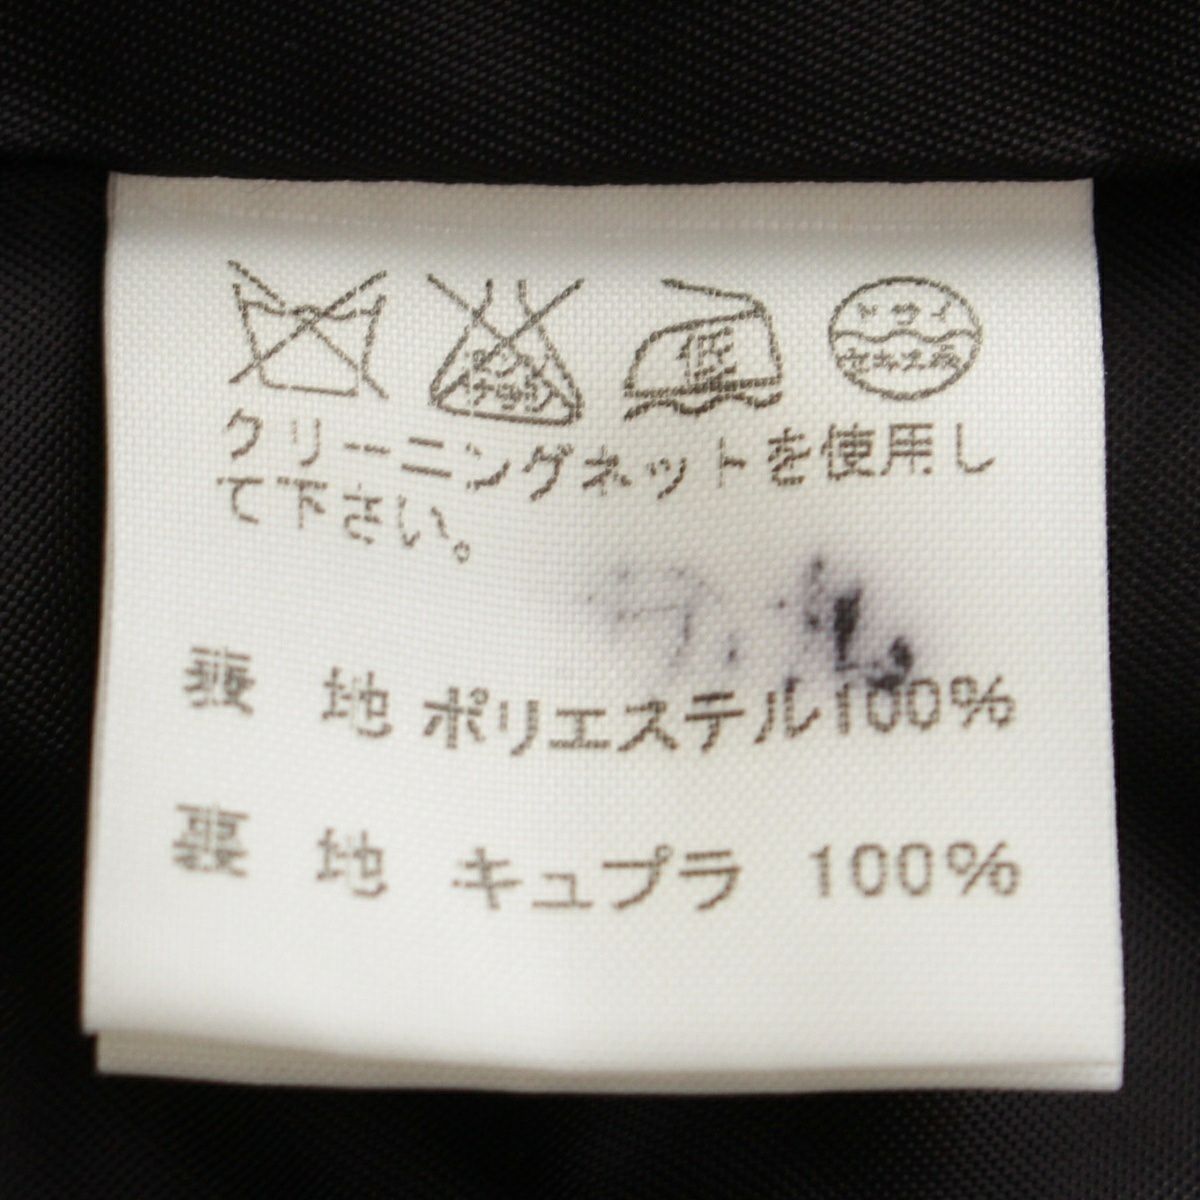 エンソ サラシ 低 ドライ セキユ系
クリーニングネットを使用し
て下さい。
表 地 ポリエステル100%
裏 地 キュプラ 100%